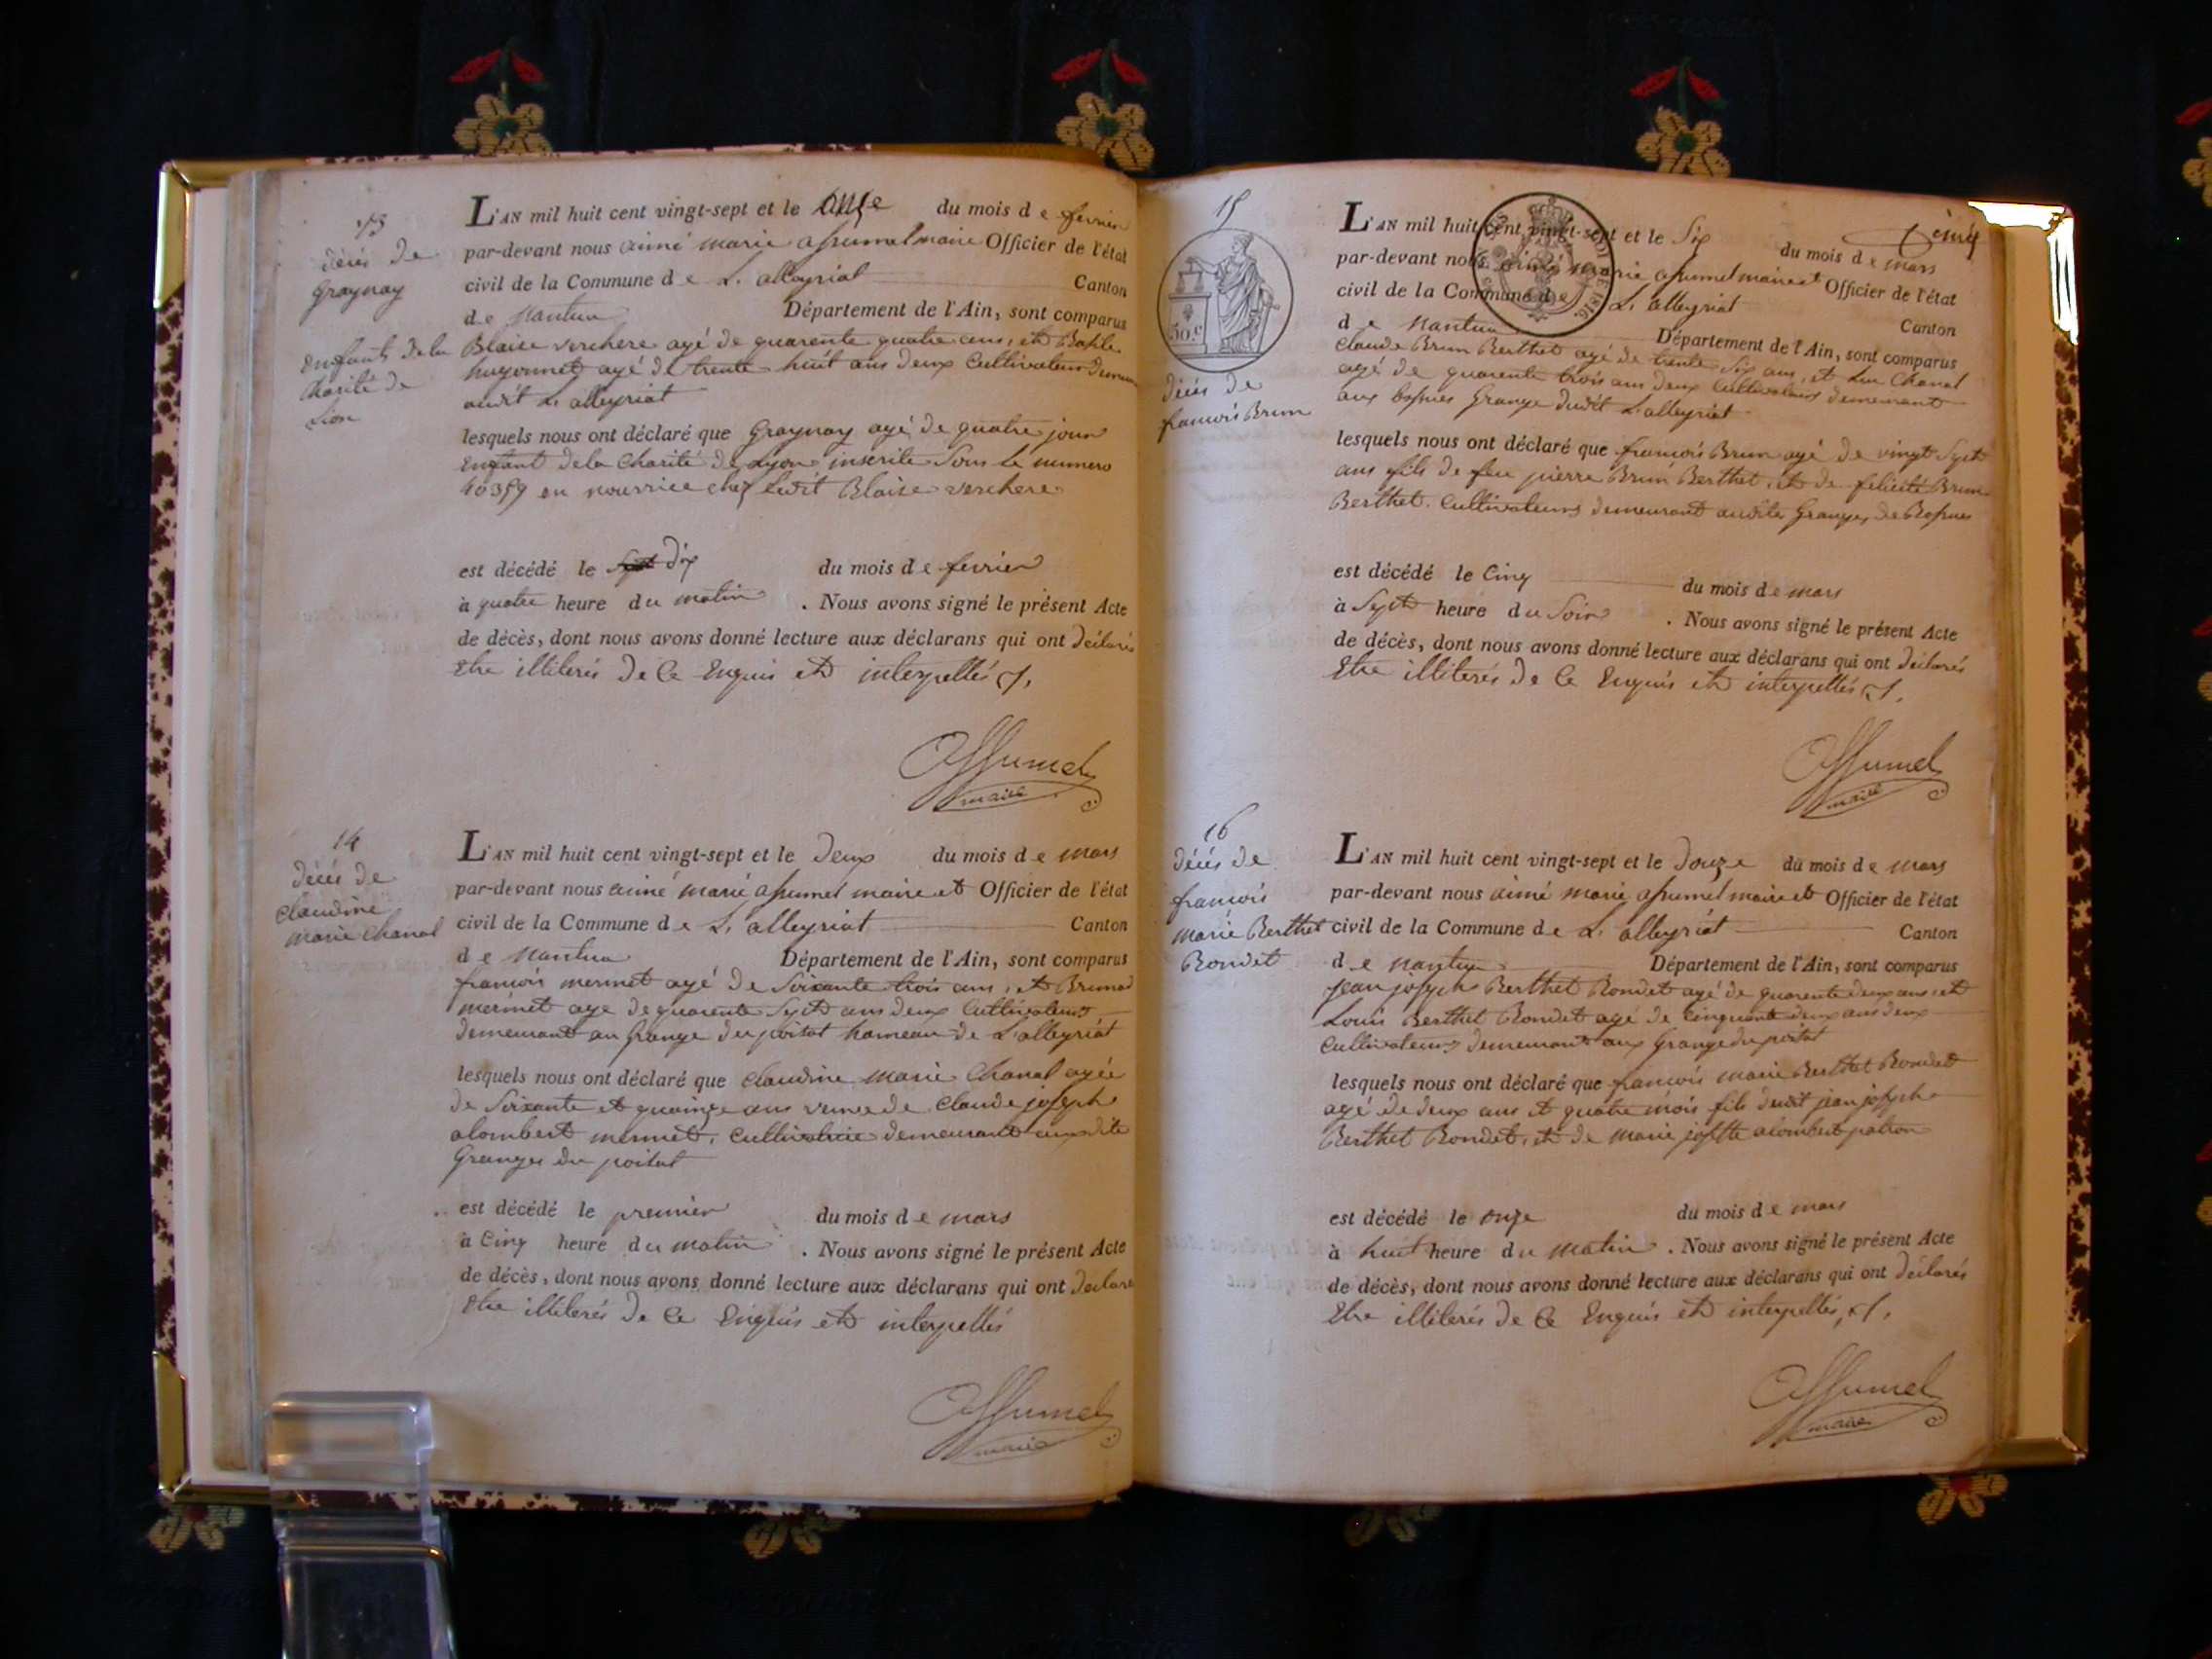 13
décés de
Graynay
enfants de la
Charité de
Lion
L'AN mil huit cent vingt-sept et le onze du mois de fevrier
par-devant nous aimé marie assumel maire Officier de l'état
civil de la Commune de L. alleyriat Canton
de Nantua Département de l'Ain, sont comparus
Blaise verchere agé de quarente quatre ans, et
huyonnet agé de trente huit ans deux Cultivateur
audit L. alleyriat
lesquels nous ont déclaré que Graynay agé de quatre jour
enfant de la Charité de Lyon inscrite Sous le numero
40359 en nourrice chez ledit Blaise verchere
est décédé le dix du mois de fevrier
à quatre heure du matin . Nous avons signé le présent Acte
de décès, dont nous avons donné lecture aux déclarans qui ont déclarés
Etre illiterés de Ce Enquis et interpellés
Assumel
maire
14
décés de
Claudine
marie Chanal
L'AN mil huit cent vingt-sept et le deux du mois de mars
par-devant nous aimé marie assumel maire et Officier de l'état
civil de la Commune de L. alleyriat Canton
de Nantua Département de l'Ain, sont comparus
francois mermet agé de Soixante trois ans, et Brunod
mermet age de quarente Sept ans deux Cultivateurs
demeurant au Grange du poisat hameau de L'alleyriat
lesquels nous ont déclaré que Claudine marie Chanal agée
de Soixante et quainze ans veuve de Claude joseph
alombert mermet, Cultivatrice demeurant audite
Granges du poisat
est décédé le premier du mois de mars
à Cinq heure du matin . Nous avons signé le présent Acte
de décès, dont nous avons donné lecture aux déclarans qui ont declaré
Etre illiterés de Ce Enquis et interpellés
Assumel
maire
15
50.c
décés de
francois Brun
L'AN mil huit cent vingt-sept et le Six du mois de mars
par-devant nous aimé marie assumel maire et Officier de l'état
civil de la Commune de L. alleyriat Canton
de Nantua Département de l'Ain, sont comparus
Claude Brun Berthet agé de trente Six ans, et Luc Chanal
agé de quarente trois ans deux Cultivateurs demeurant
aux Grange dudit L. alleyriat
lesquels nous ont déclaré que francois Brun agé de vingt Sept
ans fils de feu pierre Brun Berthet, et de felicité Brun
Berthet. Cultivateurs demeurant audites Granges de
est décédé le Cinq du mois de mars
à Sept heure du Soir . Nous avons signé le présent Acte
de décès, dont nous avons donné lecture aux déclarans qui ont déclarés
Etre illiterés de Ce Enquis et interpellés
Assumel
maire
16
décés de
francois
marie Berthet
Rondet
L'AN mil huit cent vingt-sept et le douze du mois de mars
par-devant nous aimé marie assumel maire et Officier de l'état
civil de la Commune de L. alleyriat Canton
de nantua Département de l'Ain, sont comparus
jean joseph Berthet Rondet agé de quarente deux ans et
Louis Berthet Rondet agé de Cinquante deux ans deux
Cultivateurs demeurant aux Grange du poisat
lesquels nous ont déclaré que francois marie Berthet Rondet
agé de deux ans et quatre mois fils dudit jean joseph
Berthet Rondet, et de marie josephte alombert patron
est décédé le onze du mois de mars
à huit heure du matin . Nous avons signé le présent Acte
de décès, dont nous avons donné lecture aux déclarans qui ont déclarés
Etre illiterés de Ce Enquis et interpellés
Assumel
maire